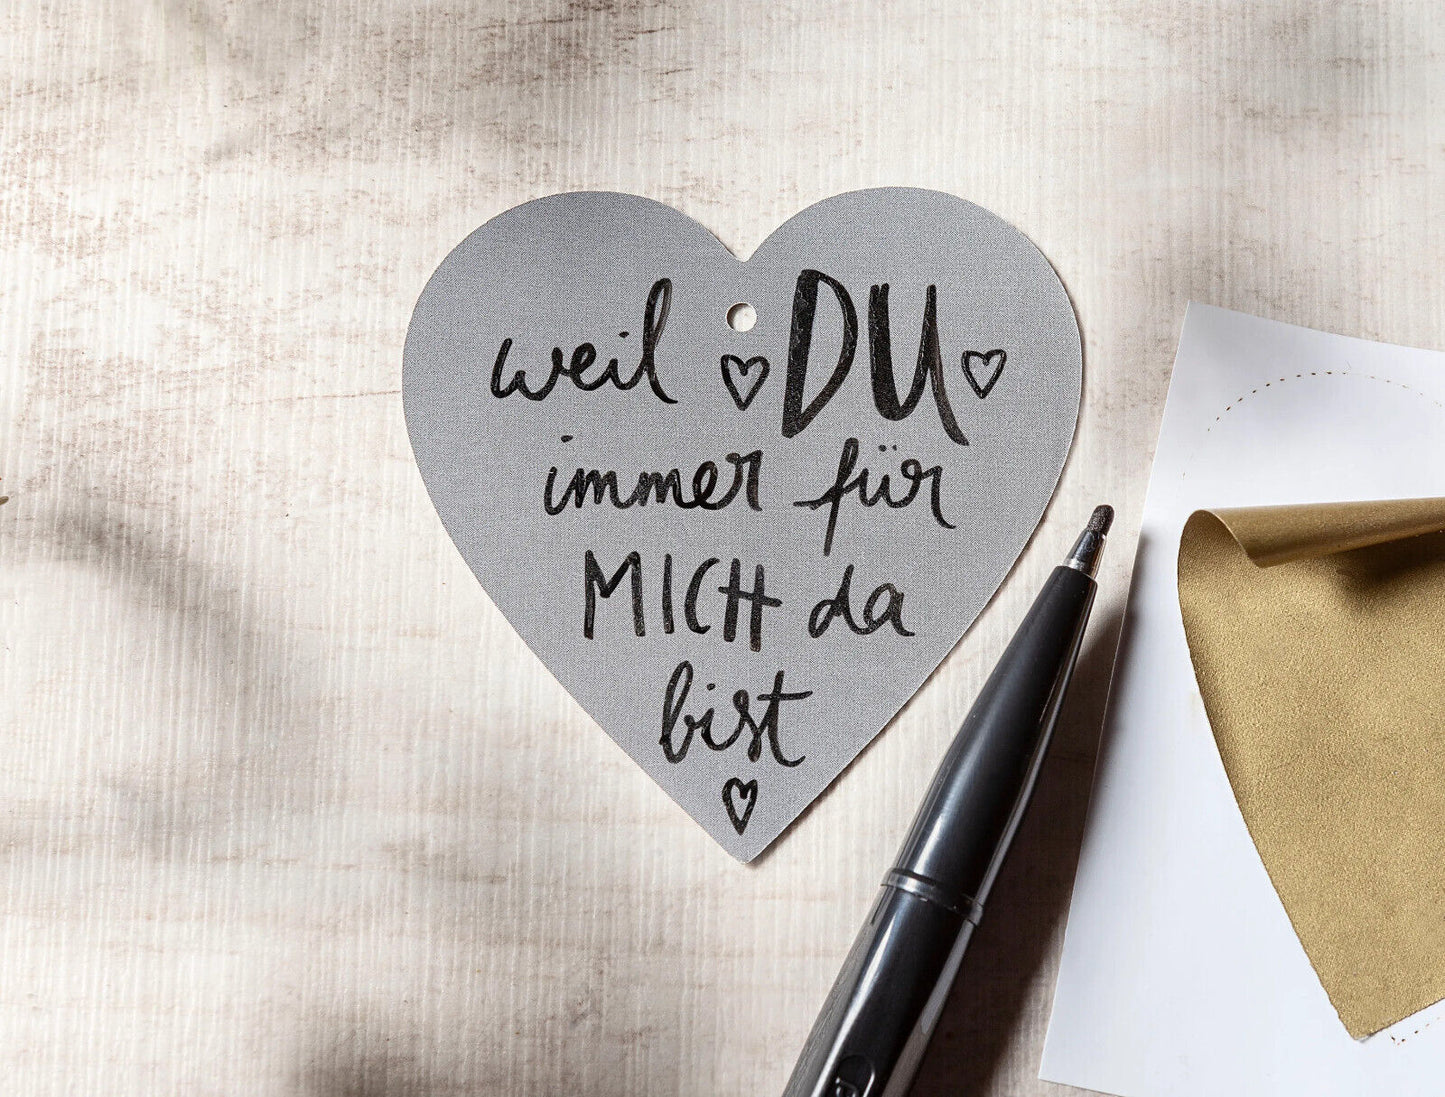 weil ♡ DU ♡
immer für
MICH da
bist
♡